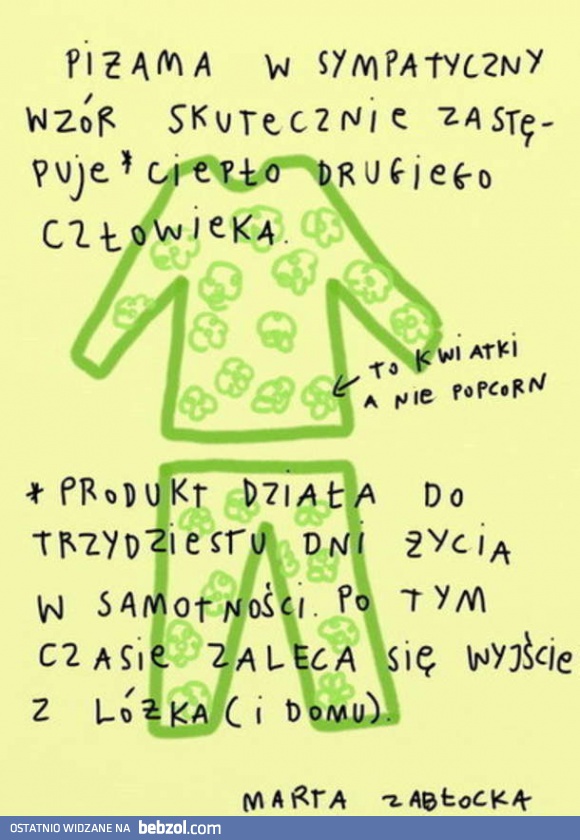 PIŻAMA W SYMPATYCZNY
WZÓR SKUTECZNIE ZASTĘ-
PUJE* CIEPŁO DRUGIEGO
CZŁOWIEKA.
TO KWIATKI
A NIE POPCORN
* PRODUKT DZIAŁA DO
TRZYDZIESTU DNI ŻYCIA
W SAMOTNOŚCI. PO TYM
CZASIE ZALECA SIĘ WYJŚCIE
Z ŁÓŻKA (I DOMU).
MARTA ZABŁOCKA
OSTATNIO WIDZANE NA bebzol.com